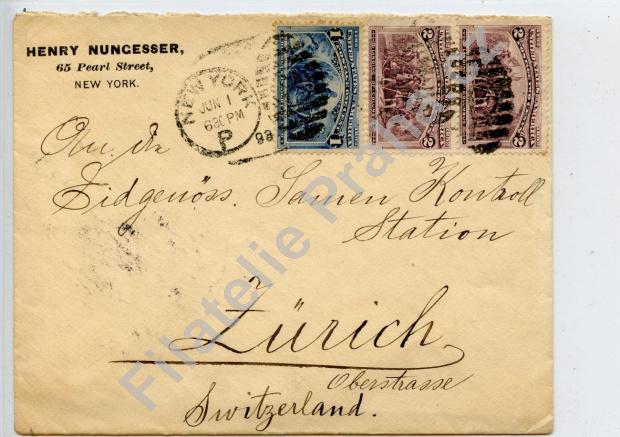 HENRY NUNGESSER,
65 Pearl Street,
NEW YORK.
NEW YORK
JUN 1
630PM
P
93
1 1
2 2
2 2
An die
Eidgenöss. Samen Kontroll
Station
Zürich
Oberstrasse
Switzerland.
Filatelie Praha